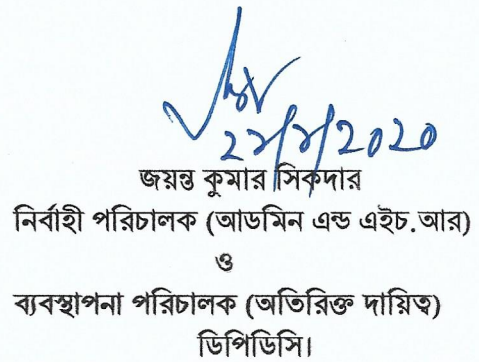 জয়ন্ত কুমার সিকদার
নির্বাহী পরিচালক (আডমিন এন্ড এইচ.আর)
ও
ব্যবস্থাপনা পরিচালক (অতিরিক্ত দায়িত্ব)
ডিপিডিসি।